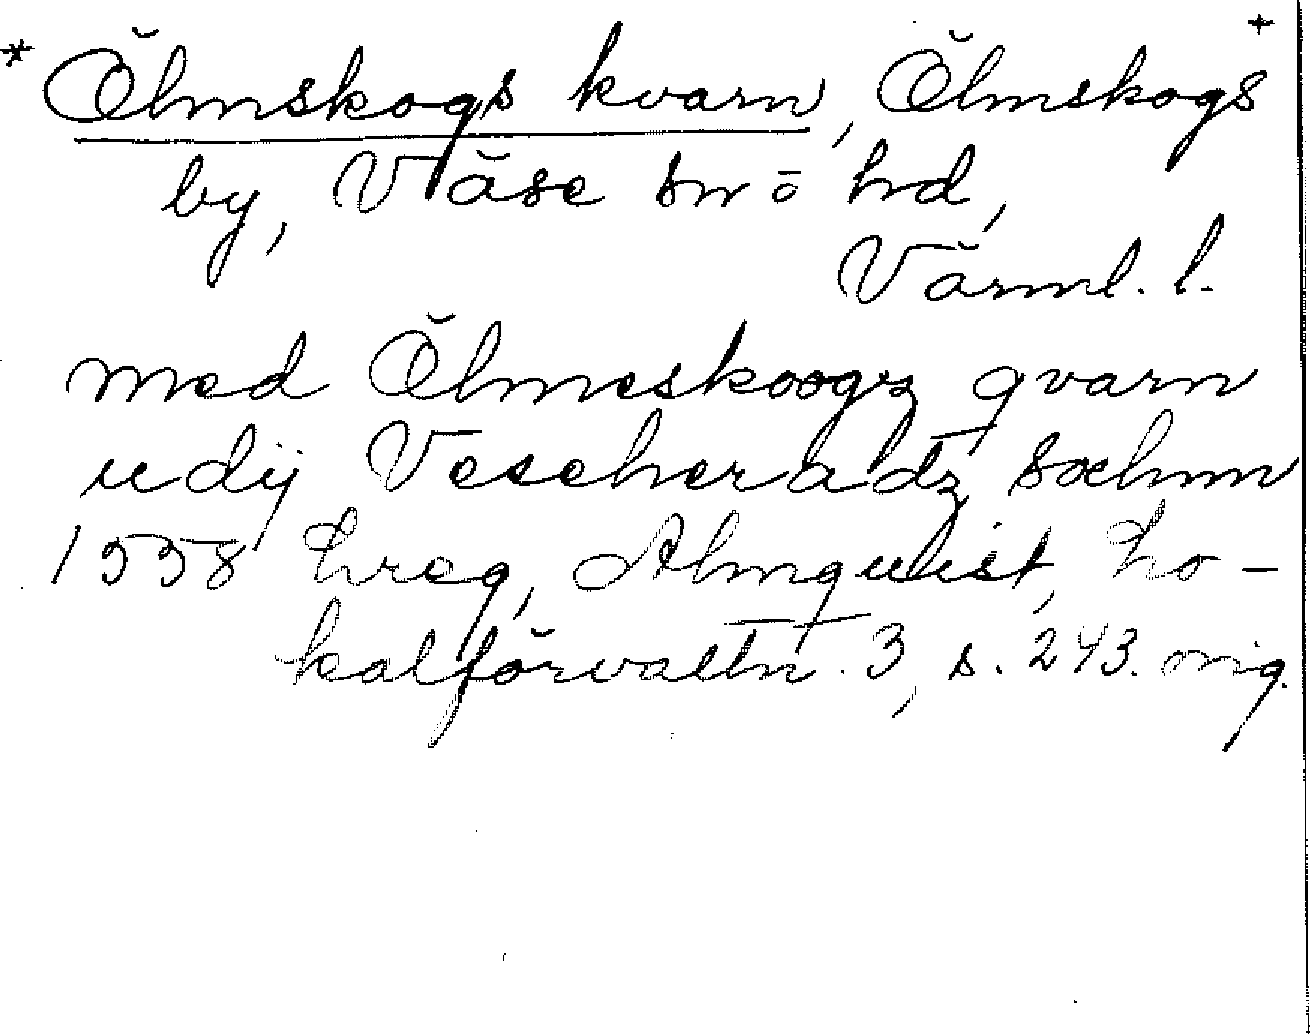 * Ölmskogs kvarn, Ölmskogs +
by, Väse sn o hd,
Värml. l.
med Ölmeskoogz qvarn
udij Veseheradz sochnn
1558 Lreg, Almquist, Lo-
kalförvaltn. 3, s. 243. mig.